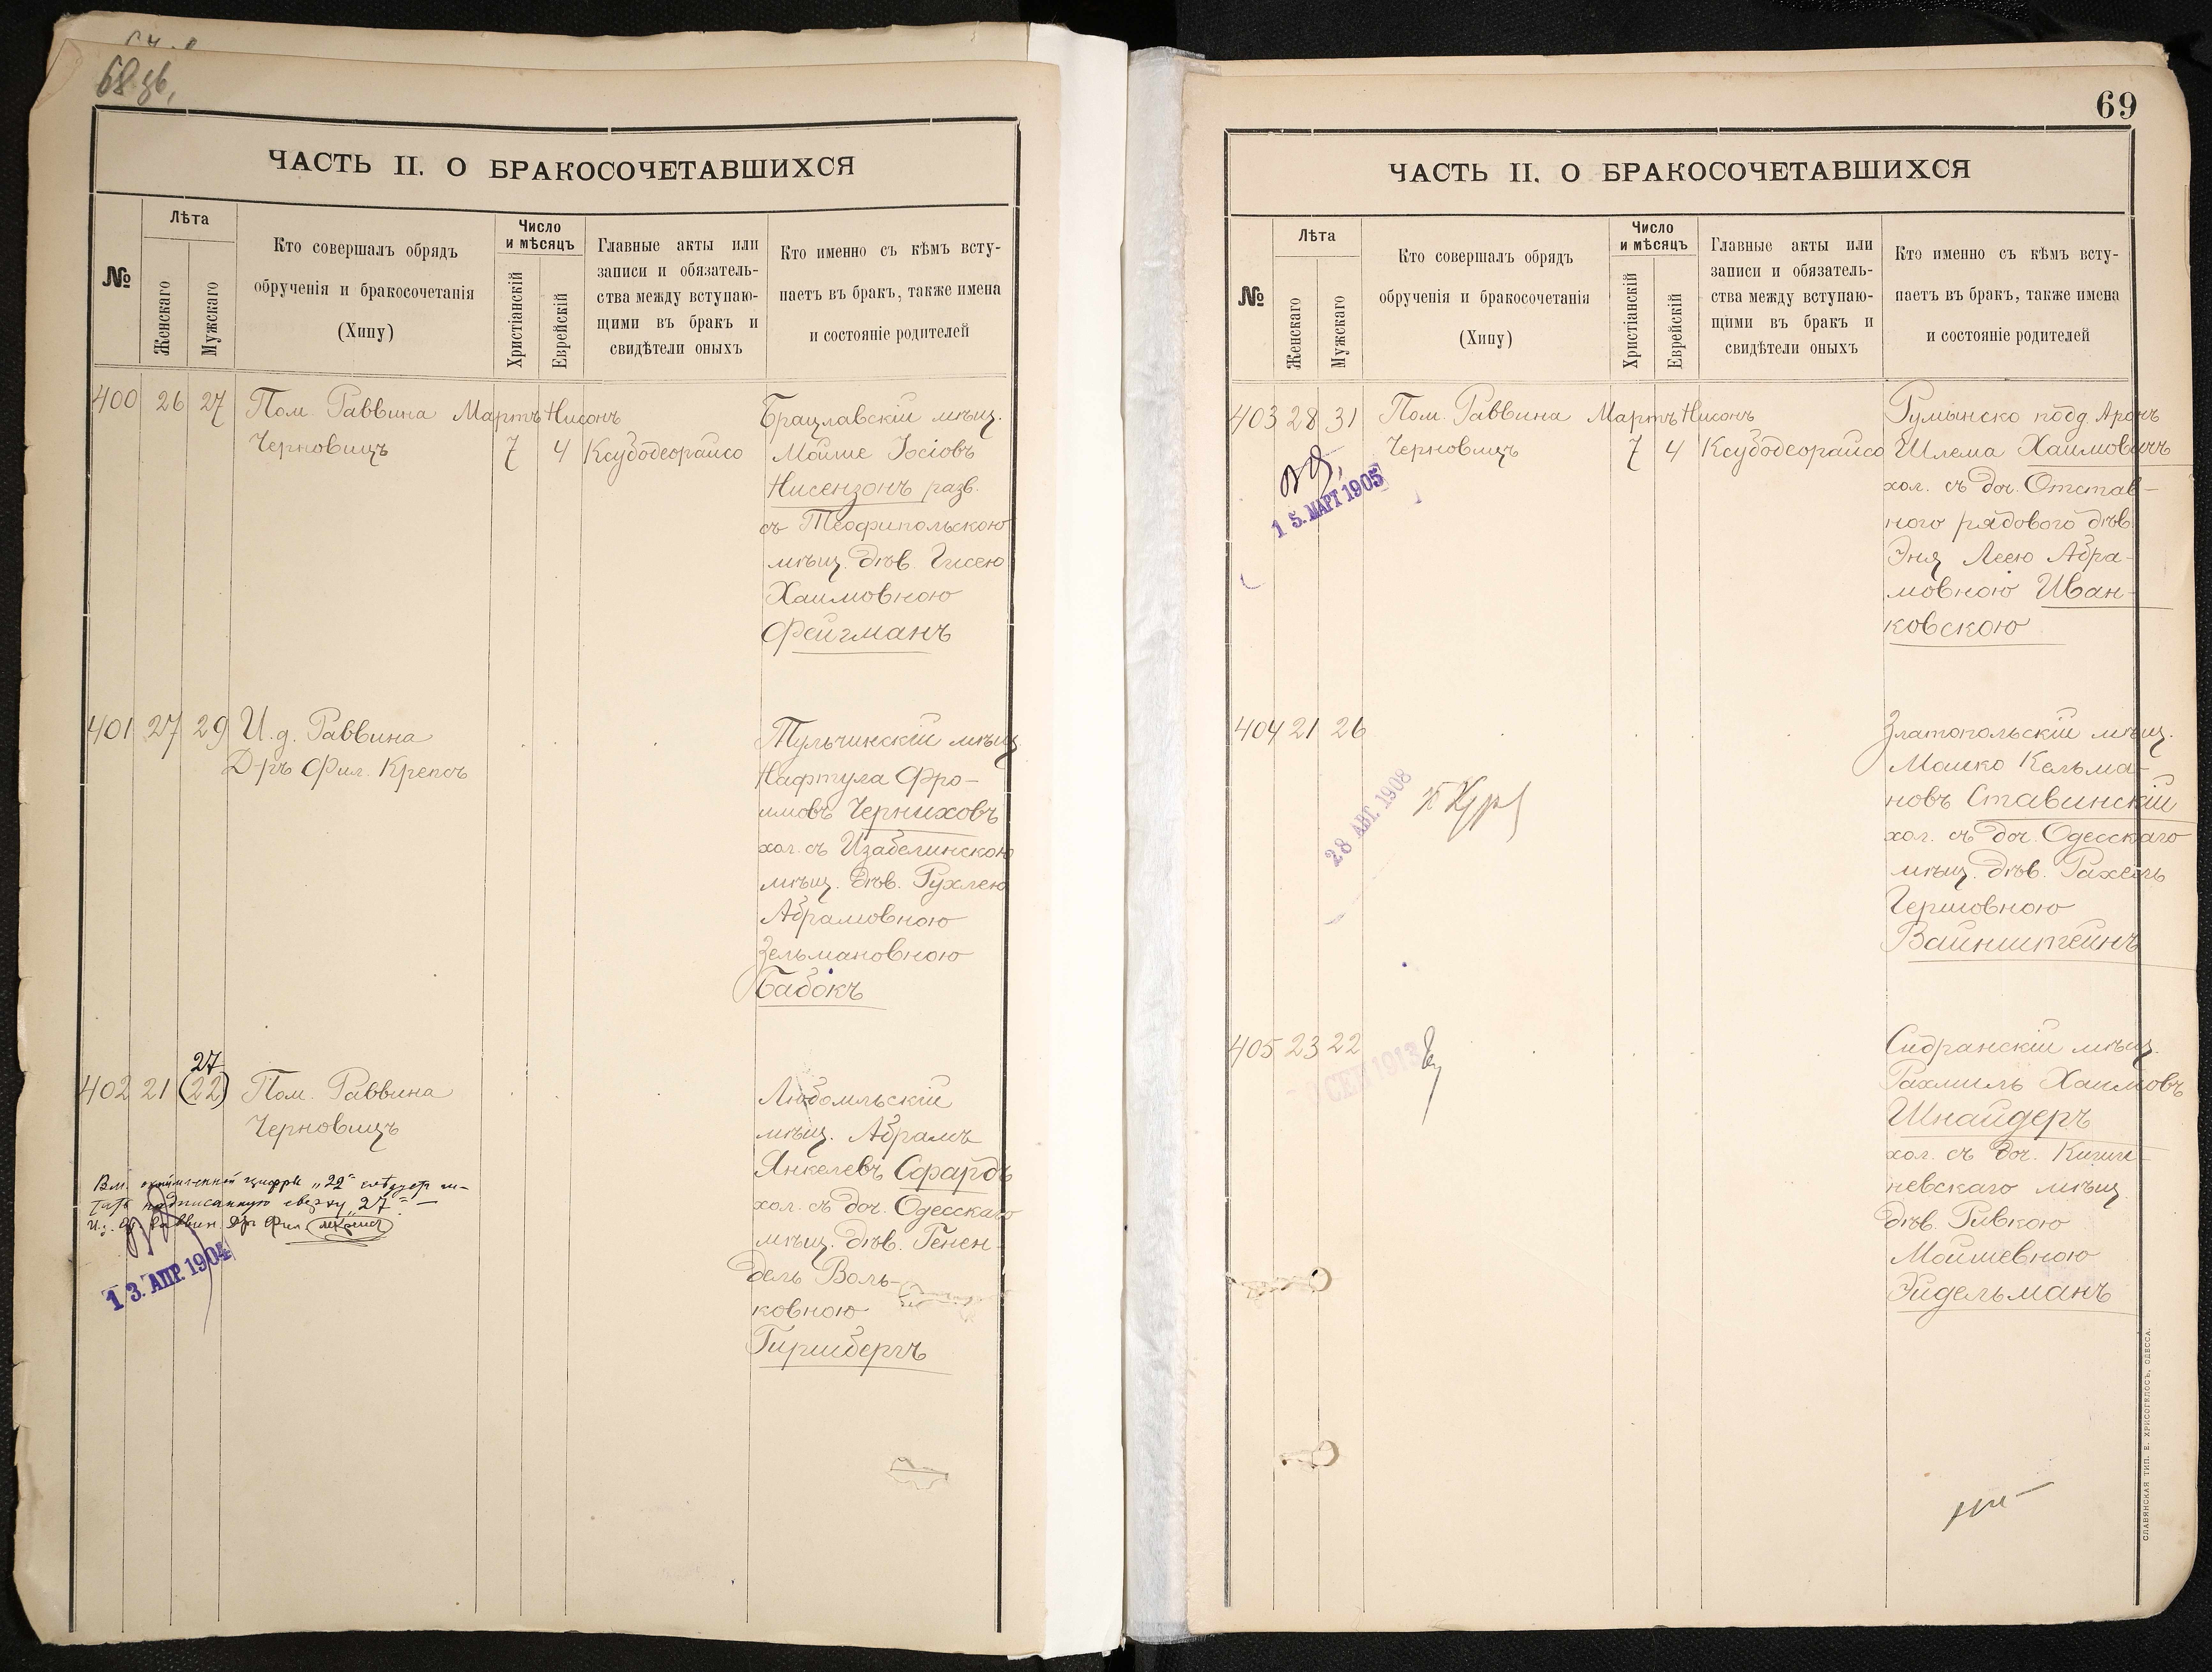 68 об.
ЧАСТЬ II. О БРАКОСОЧЕТАВШИХСЯ
№
Лѣта
Женскаго
Мужскаго
Кто совершалъ обрядъ
обрученія и бракосочетанія
(Хипу)
Число
и мѣсяцъ
Христіанскій
Еврейскій
Главные акты или
записи и обязатель-
ства между вступаю-
щими въ бракъ и
свидѣтели оныхъ
Кто именно съ кѣмъ всту-
паетъ въ бракъ, также имена
и состояніе родителей
400 26 27 Пом. Раввина Мартъ Нисонъ
Черновицъ 7 4 Ксубодеорайсо
Брацлавскій мѣщ.
Мойше Іосіовъ
Нисензонъ разв.
съ Теофипольскою
мѣщ. дѣв. Гисею
Хаимовною
Фейгманъ
401 27 29 И.д. Раввина
Д-ръ Фил. Крепсъ
Тульчинскій мѣщ.
Нафтула Фро-
имовъ Черниховъ
хол. съ Изабелинскою
мѣщ. дѣв. Рухлею
Абрамовною
Зельмановною
Бабокъ
27
402 21 (22) Пом. Раввина
Черновицъ
Любомльскій
мѣщ. Абрамъ
Янкелевъ Сфардъ
хол. съ доч. Одесскаго
мѣщ. дѣв. Генен-
дель Воль-
ковною
Гиршбергъ
Вм. цифры „22“ слѣдуетъ чи-
тать надписанную сверху „27“ —
И. д. Раввин. Др Фил
13. АПР. 1904
69
ЧАСТЬ II. О БРАКОСОЧЕТАВШИХСЯ
№
Лѣта
Женскаго
Мужскаго
Кто совершалъ обрядъ
обрученія и бракосочетанія
(Хипу)
Число
и мѣсяцъ
Христіанскій
Еврейскій
Главные акты или
записи и обязатель-
ства между вступаю-
щими въ бракъ и
свидѣтели оныхъ
Кто именно съ кѣмъ всту-
паетъ въ бракъ, также имена
и состояніе родителей
403 28 31 Пом. Раввина Мартъ Нисонъ
Черновицъ 7 4 Ксубодеорайсо
15. МАРТ 1905
Румынско подд. Аронъ
Шлема Хаимовичъ
хол. съ доч. Отстав-
ного рядового дѣв.
Эня Леею Абра-
мовною Иван-
ковскою
404 21 26
28 АВГ. 1908
Златопольскій мѣщ.
Мошко Кельма-
новъ Ставинскій
хол. съ доч. Одесскаго
мѣщ. дѣв. Рахель
Гершовною
Вайнштейнъ
405 23 22
СЕН 1913
Сидранскій мѣщ.
Рахмиль Хаимовъ
Шнайдеръ
хол. съ доч. Киши-
невскаго мѣщ.
дѣв. Ривкою
Мойшевною
Эйдельманъ
СЛАВЯНСКАЯ ТИП. Е. ХРИСОГЕЛОСЪ, ОДЕССА.